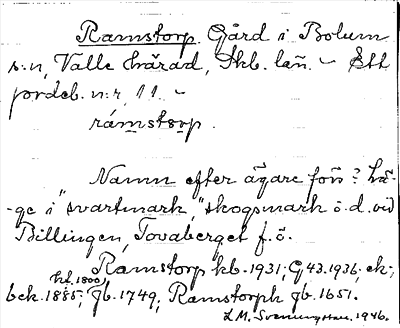 Ramstorp. Gård i Bolum
s:n, Valle härad, Skb. län. – Ett
jordeb. n:r, 11. –
rámstɔrp.
Namn efter ägare förr? Lä-
-ge i "svartmark," skogsmark ö.d. vid
Billingen, Tovaberget f. ö.
Ramstorp kb. 1931; G43. 1936; ek;
hf. 1800
bek. 1885; Jb. 1749; Ramstorph Jb. 1651.
L.M. Svenungsson. 1946.